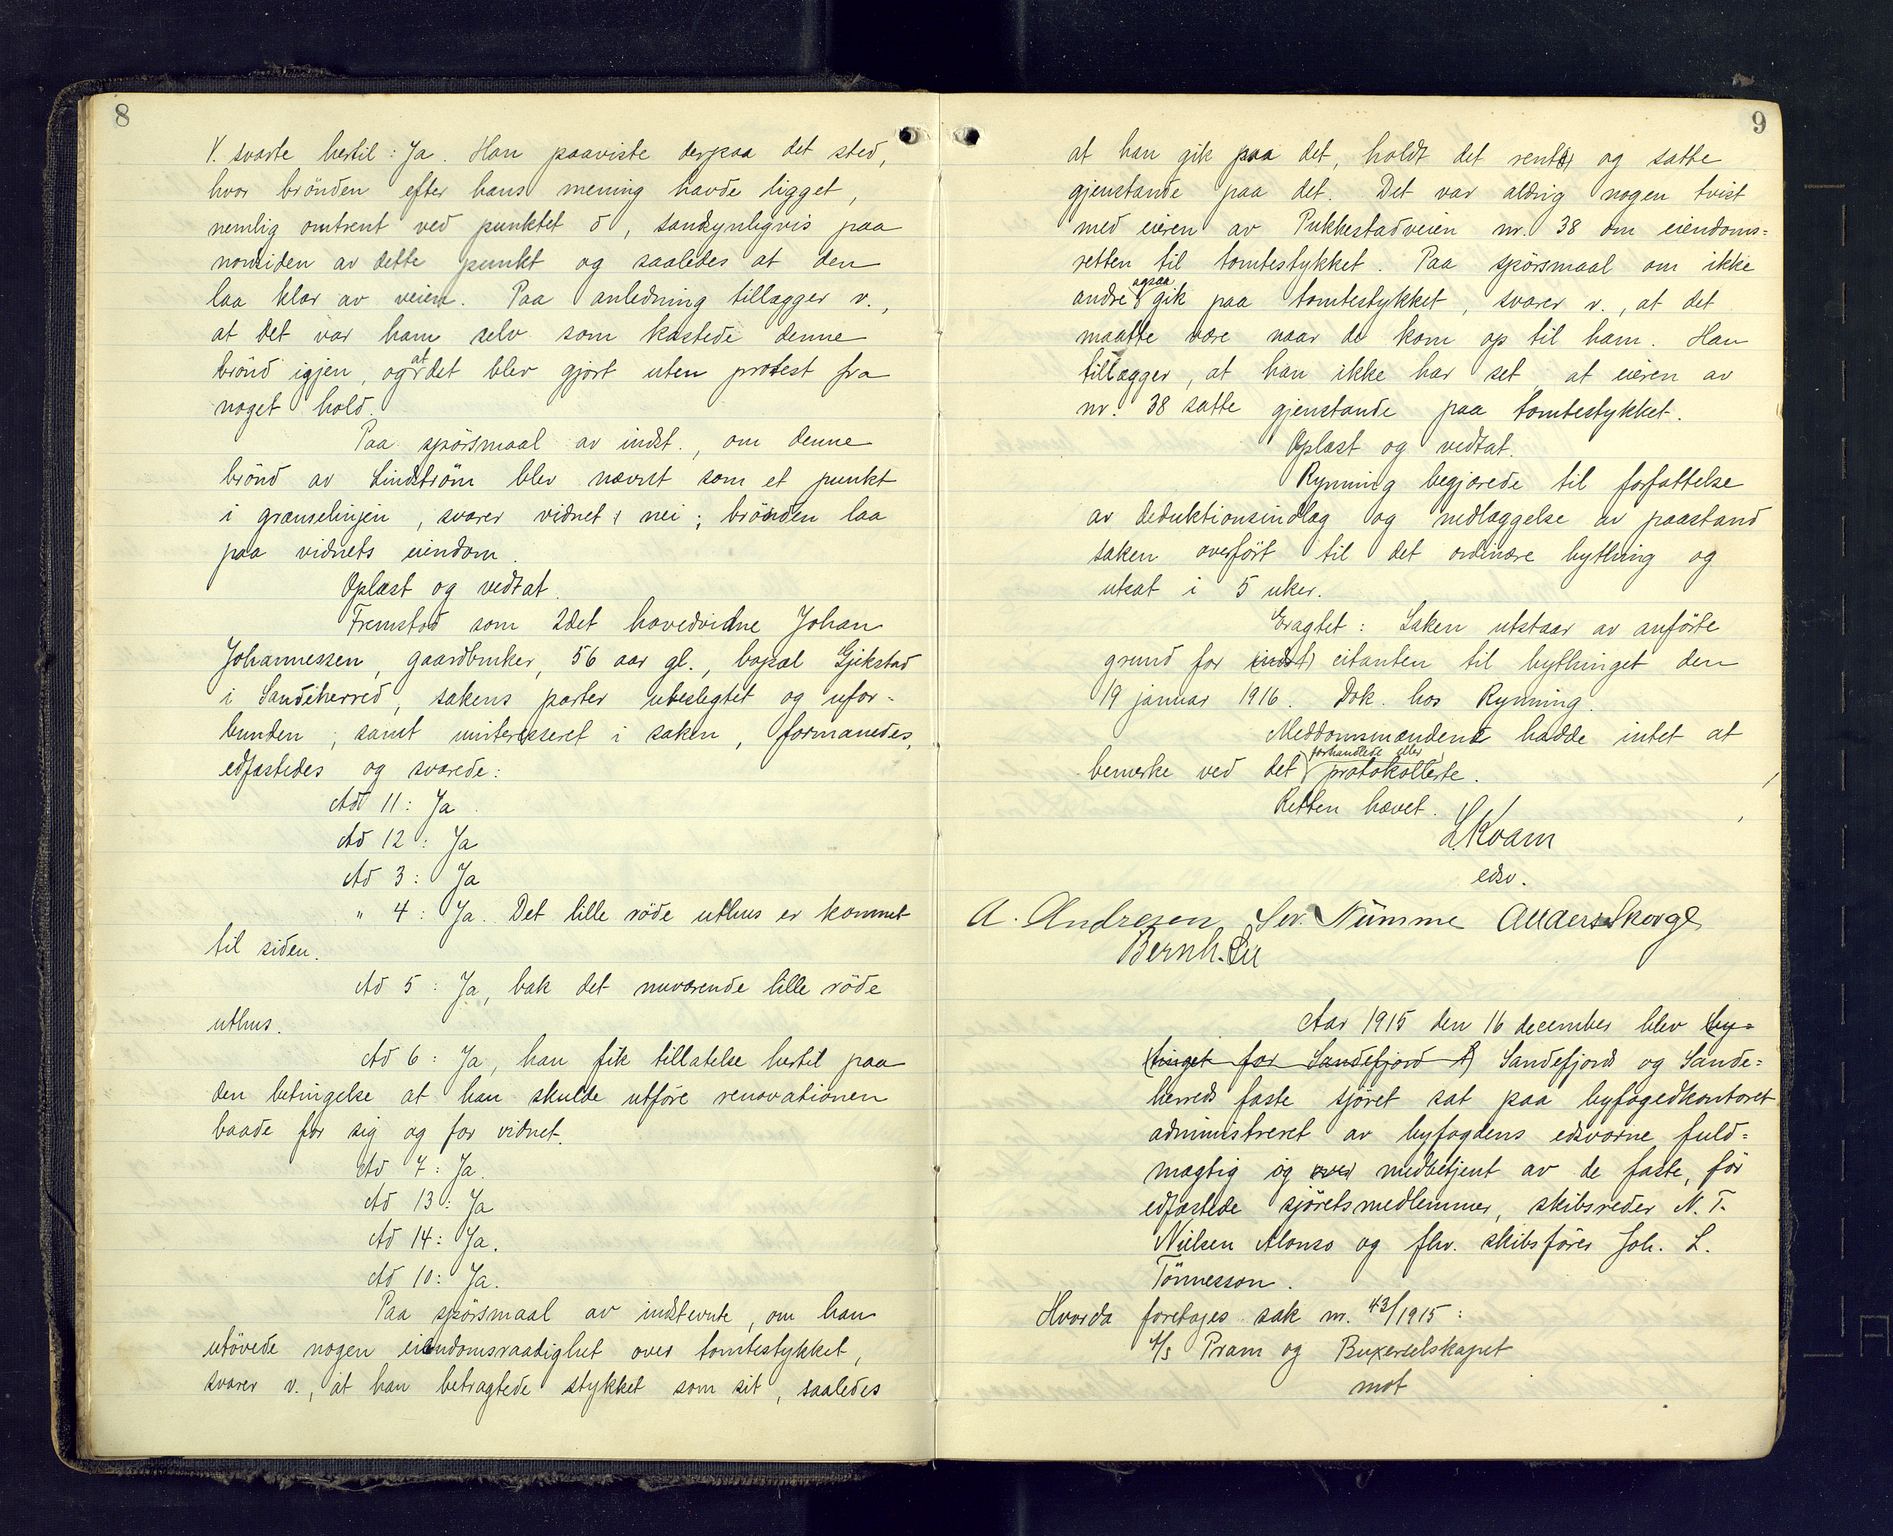 8
V. svarte hertil: Ja. Han paaviste derpaa det sted,
hvor brönden efter hans mening havde ligget,
nemlig omtrent ved punktet d, sandsynligvis paa
nordsiden av dette punkt og saaledes at den
laa klar av veien. Paa anledning tillægger v.,
at det var ham selv som kastede denne
brönd igjen, og at det blev gjort uten protest fra
noget hold.
Paa spörsmaal av indst., om denne
brönd av Lindström blev nævnt som et punkt
i grænselinjen, svarer vidnet: nei; brönden laa
paa vidnets eiendom.
Oplæst og vedtat.
Fremstod som 2det hovedvidne Johan
Johannessen, gaardbruker, 56 aar gl., bopæl Gjekstad
i Sandeherred, sakens parter ubeslegtet og ufor-
bunden, samt uinteresseret i saken, formanedes,
edfæstedes og svarede:
Ad 11: Ja.
Ad 12: Ja
Ad 3: Ja
" 4: Ja. Det lille röde uthus er kommet
til siden.
Ad 5: Ja, bak det nuværende lille röde
uthus.
Ad 6: Ja, han fik tillatelse hertil paa
den betingelse at han skulde utföre renovationen
baade for sig og for vidnet.
Ad 7: Ja.
Ad 13: Ja
Ad 14: Ja.
Ad 10: Ja.
Paa spörsmaal av indstevnte, om han
utövede nogen eiendomsraadighet over tomtestykket,
svarer v., at han betragtede stykket som sit, saaledes
9
at han gik paa det, holdt det rent og satte
gjenstande paa det. Det var aldrig nogen tvist
med eieren av Pukkestadveien nr. 38 om eiendoms=
retten til tomtestykket. Paa spörsmaal om ikke
andre ogsaa gik paa tomtestykket, svarer v., at det
maatte være naar de kom op til ham. Han
tillægger, at han ikke har set at eieren av
nr. 38 satte gjenstande paa tomtestykket.
Oplæst og vedtat.
Rynning begjærede til forfattelse
av deduktionsindlæg og nedlæggelse av paastand
saken overfört til det ordinære bything og
utsat i 5 uker.
Eragtet: Saken utstaar av anförte
grund for (indst) citanten til bythinget den
19 januar 1916. Dok. hos Rynning.
Meddomsmændene hadde intet at
bemerke ved det forhandlede eller protokollerte.
Retten hævet.
L. Kvam
edsv.
A. Andresen Sev. Nümme Anders Skorge
Bernh. Lie
Aar 1915 den 16 december blev by=
(tinget for Sandefjord) Sandefjord og Sande=
herreds faste sjöret sat paa byfogedkontoret
administreret av byfogdens edsvorne fuld=
mægtig og med medbetjent av de faste, för
edfæstede sjöretsmedlemmer, skibsreder N. T.
Nielsen Alonso og fhv. skibsförer Joh. L.
Tönnesson.
Hvorda foretages sak nr. 43/1915:
A/S Pram og Buxerselskapet
mot